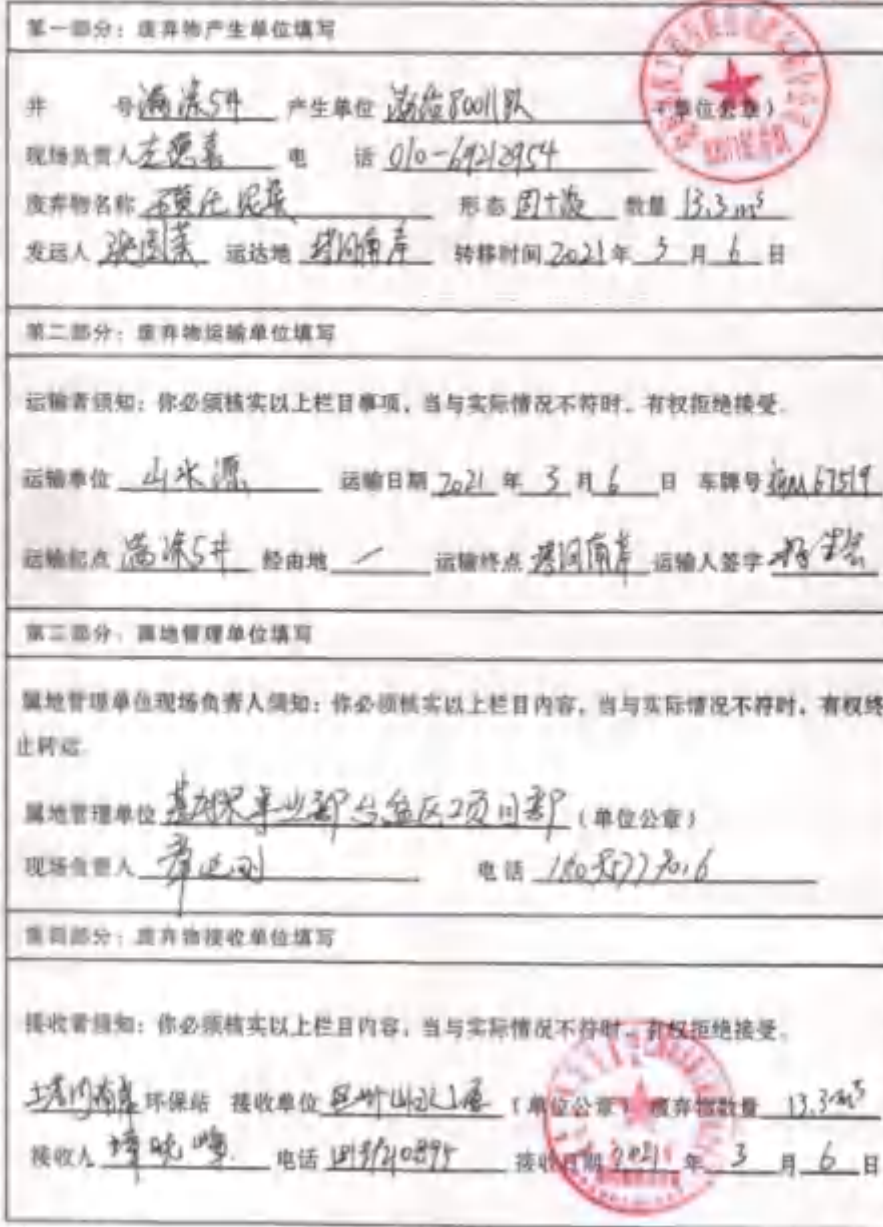 第一部分：废弃物产生单位填写
井 号 满深5井 产生单位 80011队 （单位公章）
现场负责人 电 话 010-69212954
废弃物名称 磺化泥浆 形态 固+液 数量 13.3m³
发运人 张国英 运达地 塔河南岸 转移时间 2021 年 3 月 6 日
第二部分：废弃物运输单位填写
运输者须知：你必须核实以上栏目事项，当与实际情况不符时，有权拒绝接受。
运输单位 山水源 运输日期 2021 年 3 月 6 日 车牌号 新M67519
运输起点 满深5井 经由地 / 运输终点 塔河南岸 运输人签字
第三部分：属地管理单位填写
属地管理单位现场负责人须知：你必须核实以上栏目内容，当与实际情况不符时，有权终
止转运
属地管理单位 事业部台盆区项目部 （单位公章）
现场负责人 电话
第四部分：废弃物接收单位填写
接收者须知：你必须核实以上栏目内容，当与实际情况不符时，有权拒绝接受。
塔河南岸 环保站 接收单位 （单位公章） 废弃物数量 13.3m³
接收人 电话 接收日期 2021 年 3 月 6 日